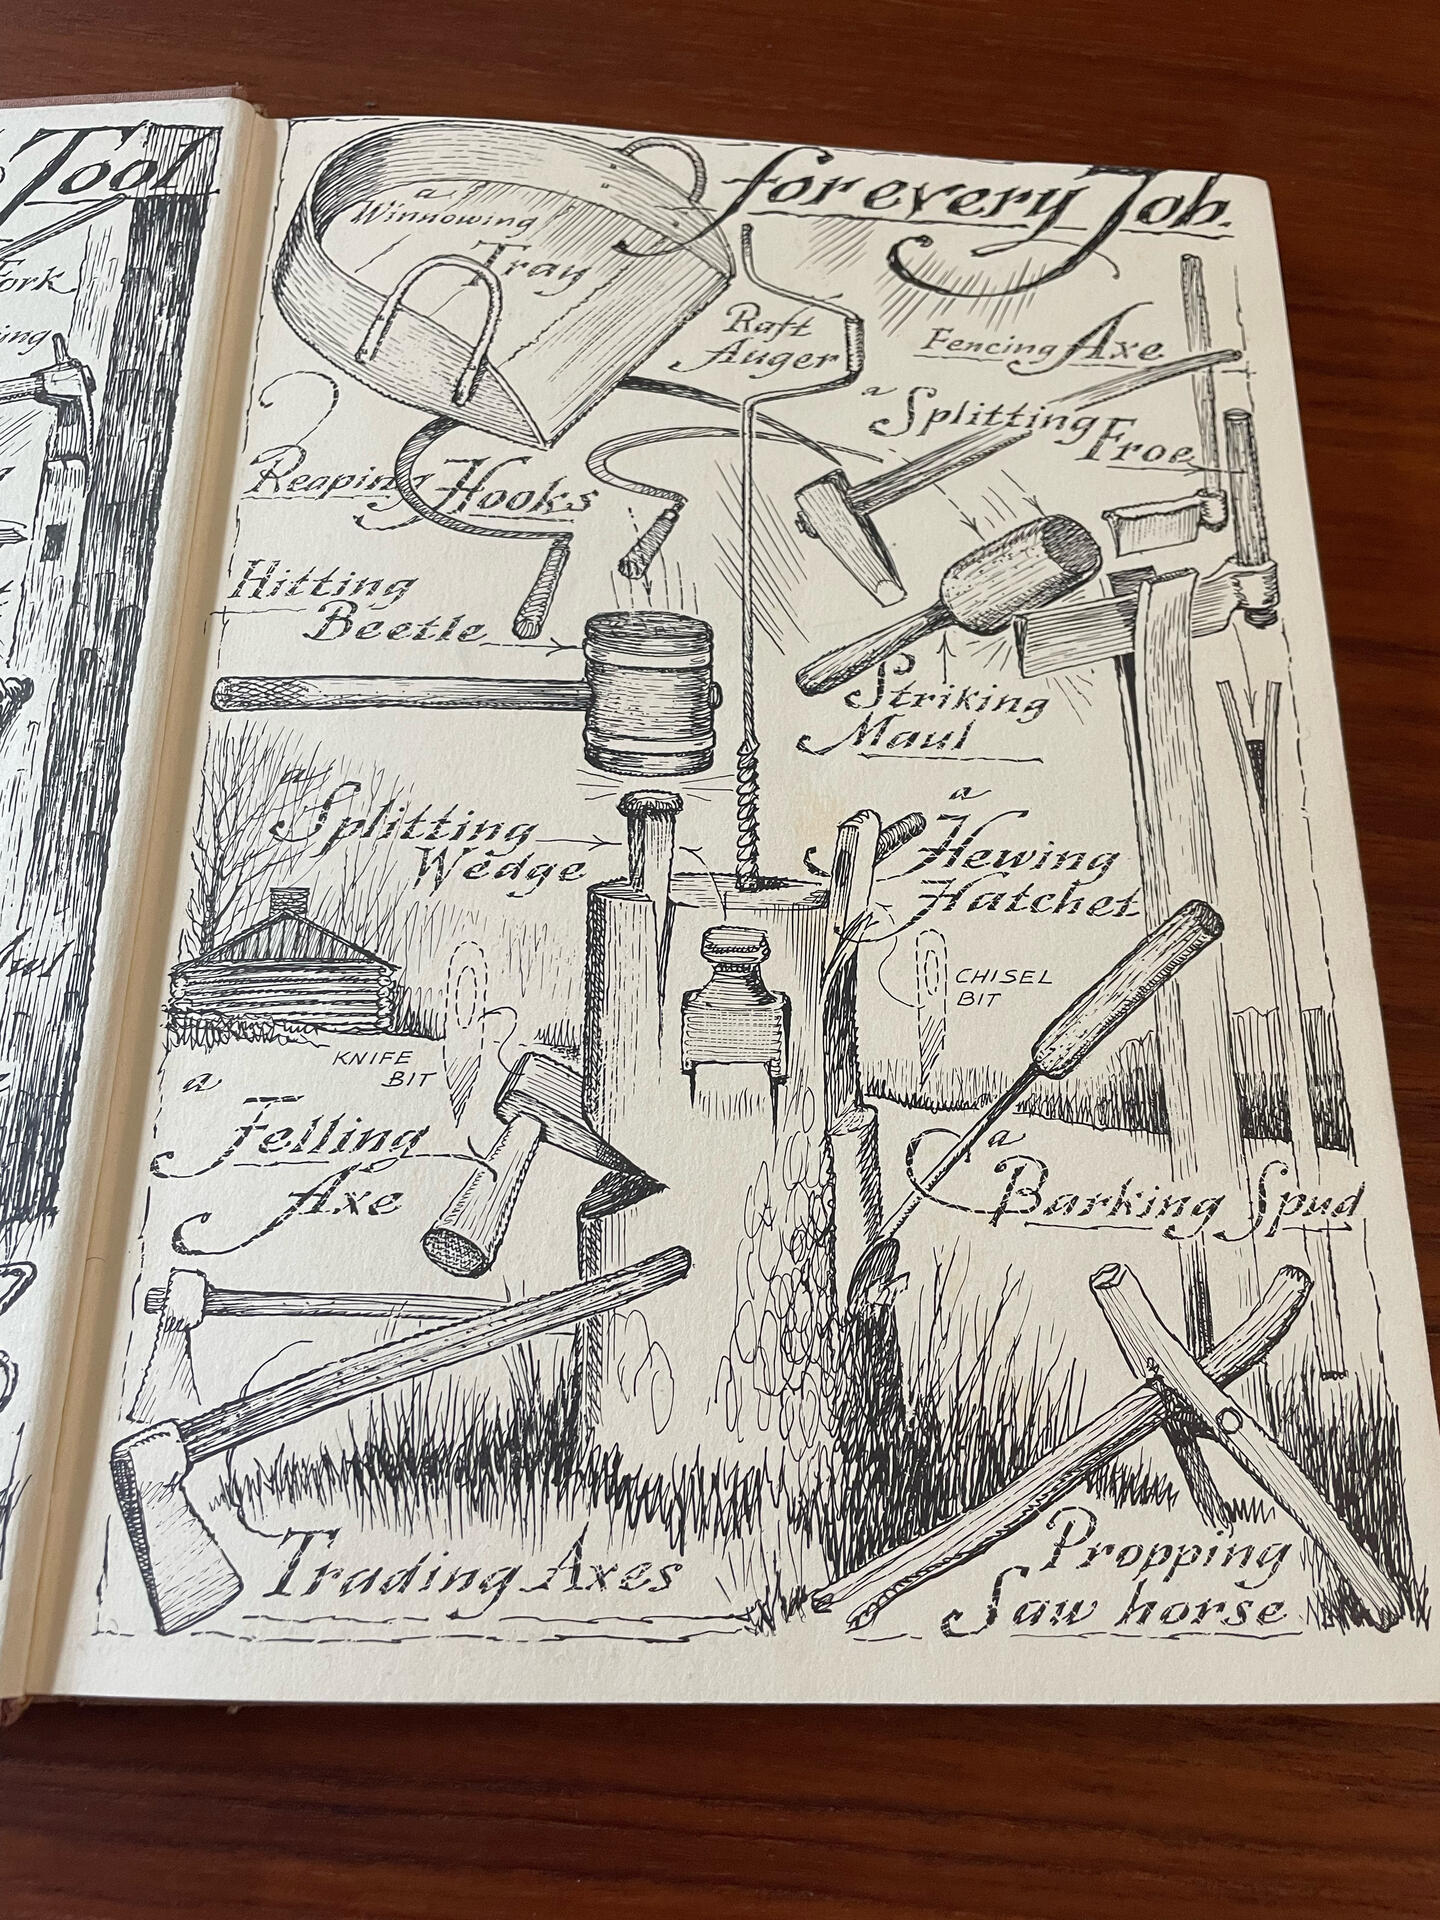 Tool
for every Job.
Fork
ing
a
Winnowing
Tray
Raft
Auger
Fencing Axe
a
Splitting
Froe
Reaping Hooks
Hitting
Beetle
Striking
Maul
a
Splitting
Wedge
a
Hewing
Hatchet
CHISEL
BIT
KNIFE
BIT
a
Felling
Axe
a
Barking Spud
Trading Axes
Propping
Saw horse